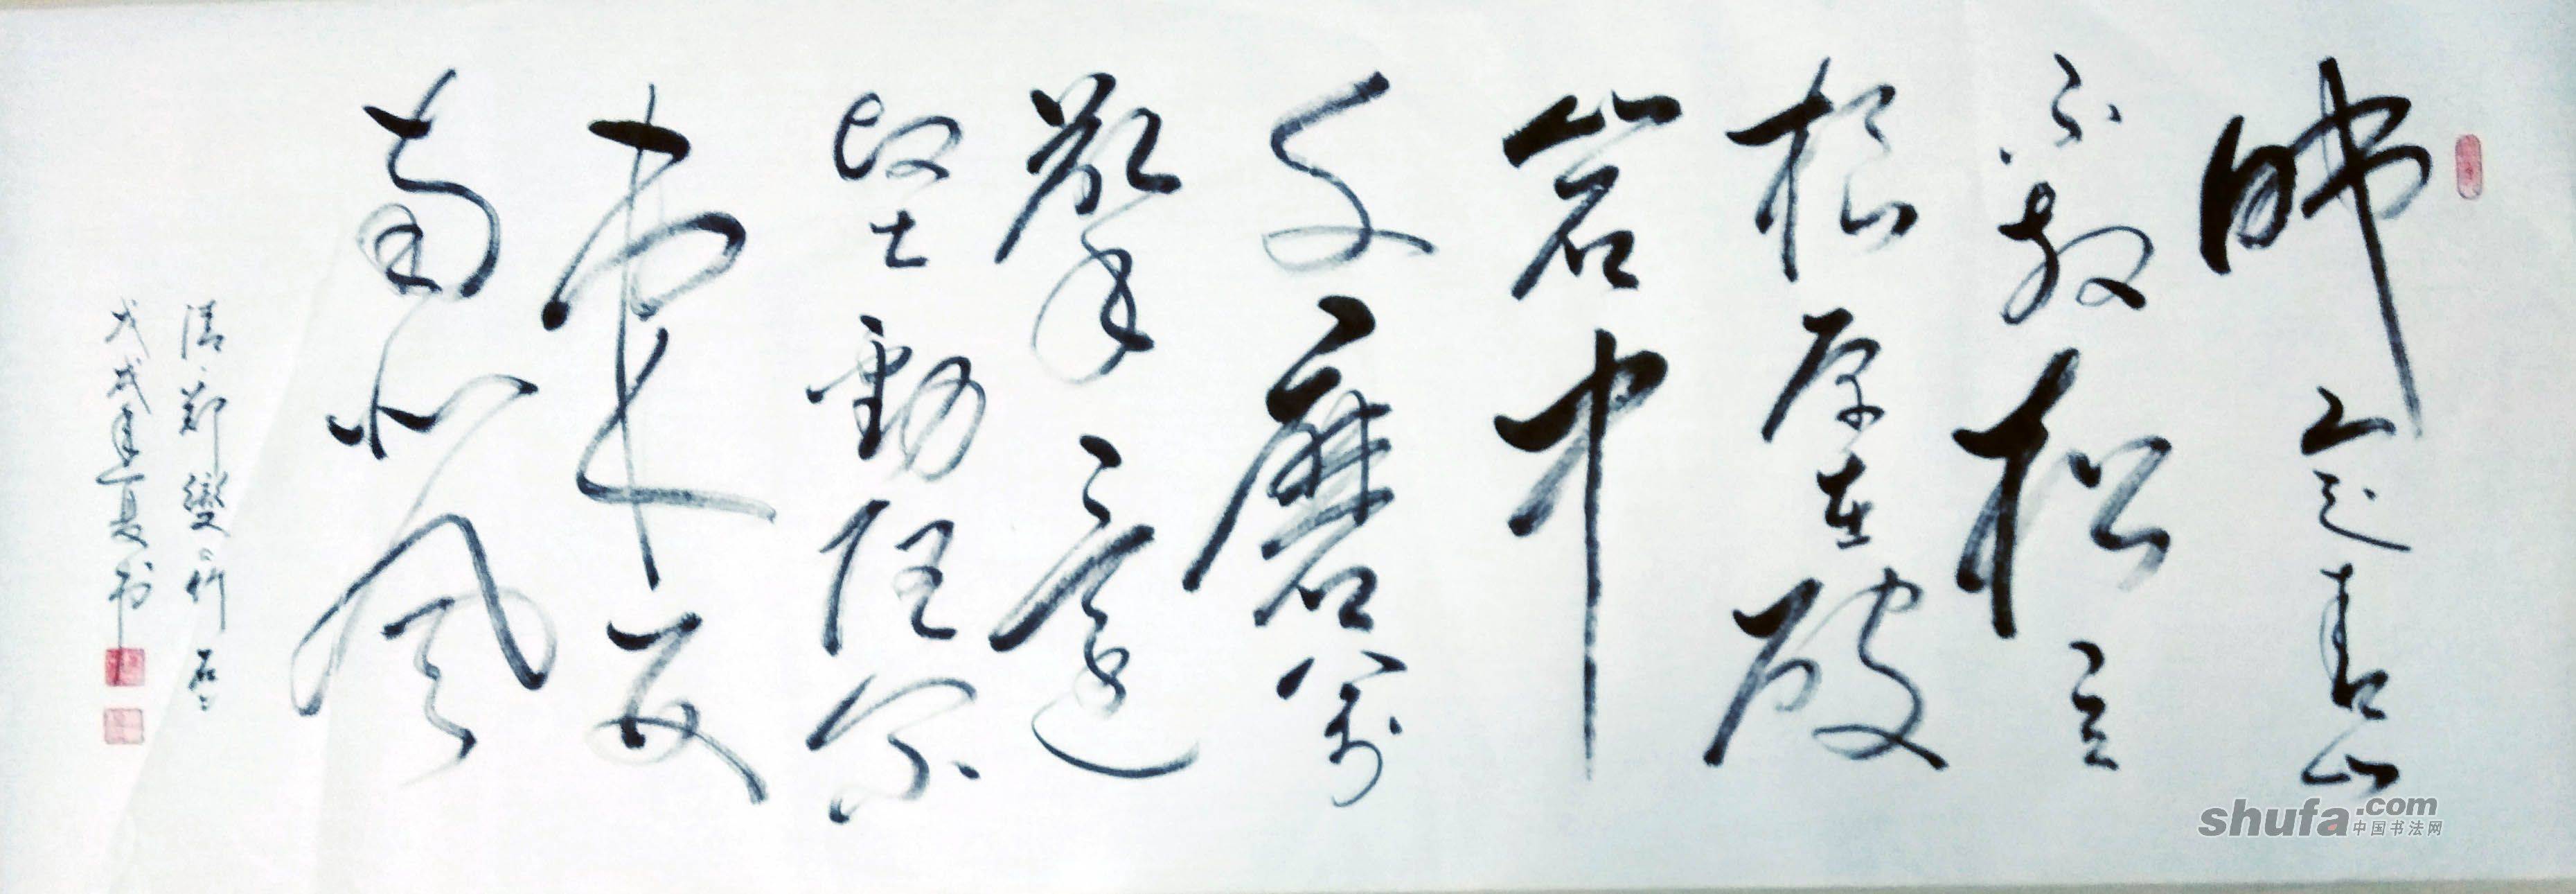 咬定青山
不放松立
根原在破
岩中
千磨萬
擊還
堅勁任尔
東西
南北風
清鄭燮竹石
戊戌年夏书
shufa.com
中国书法网